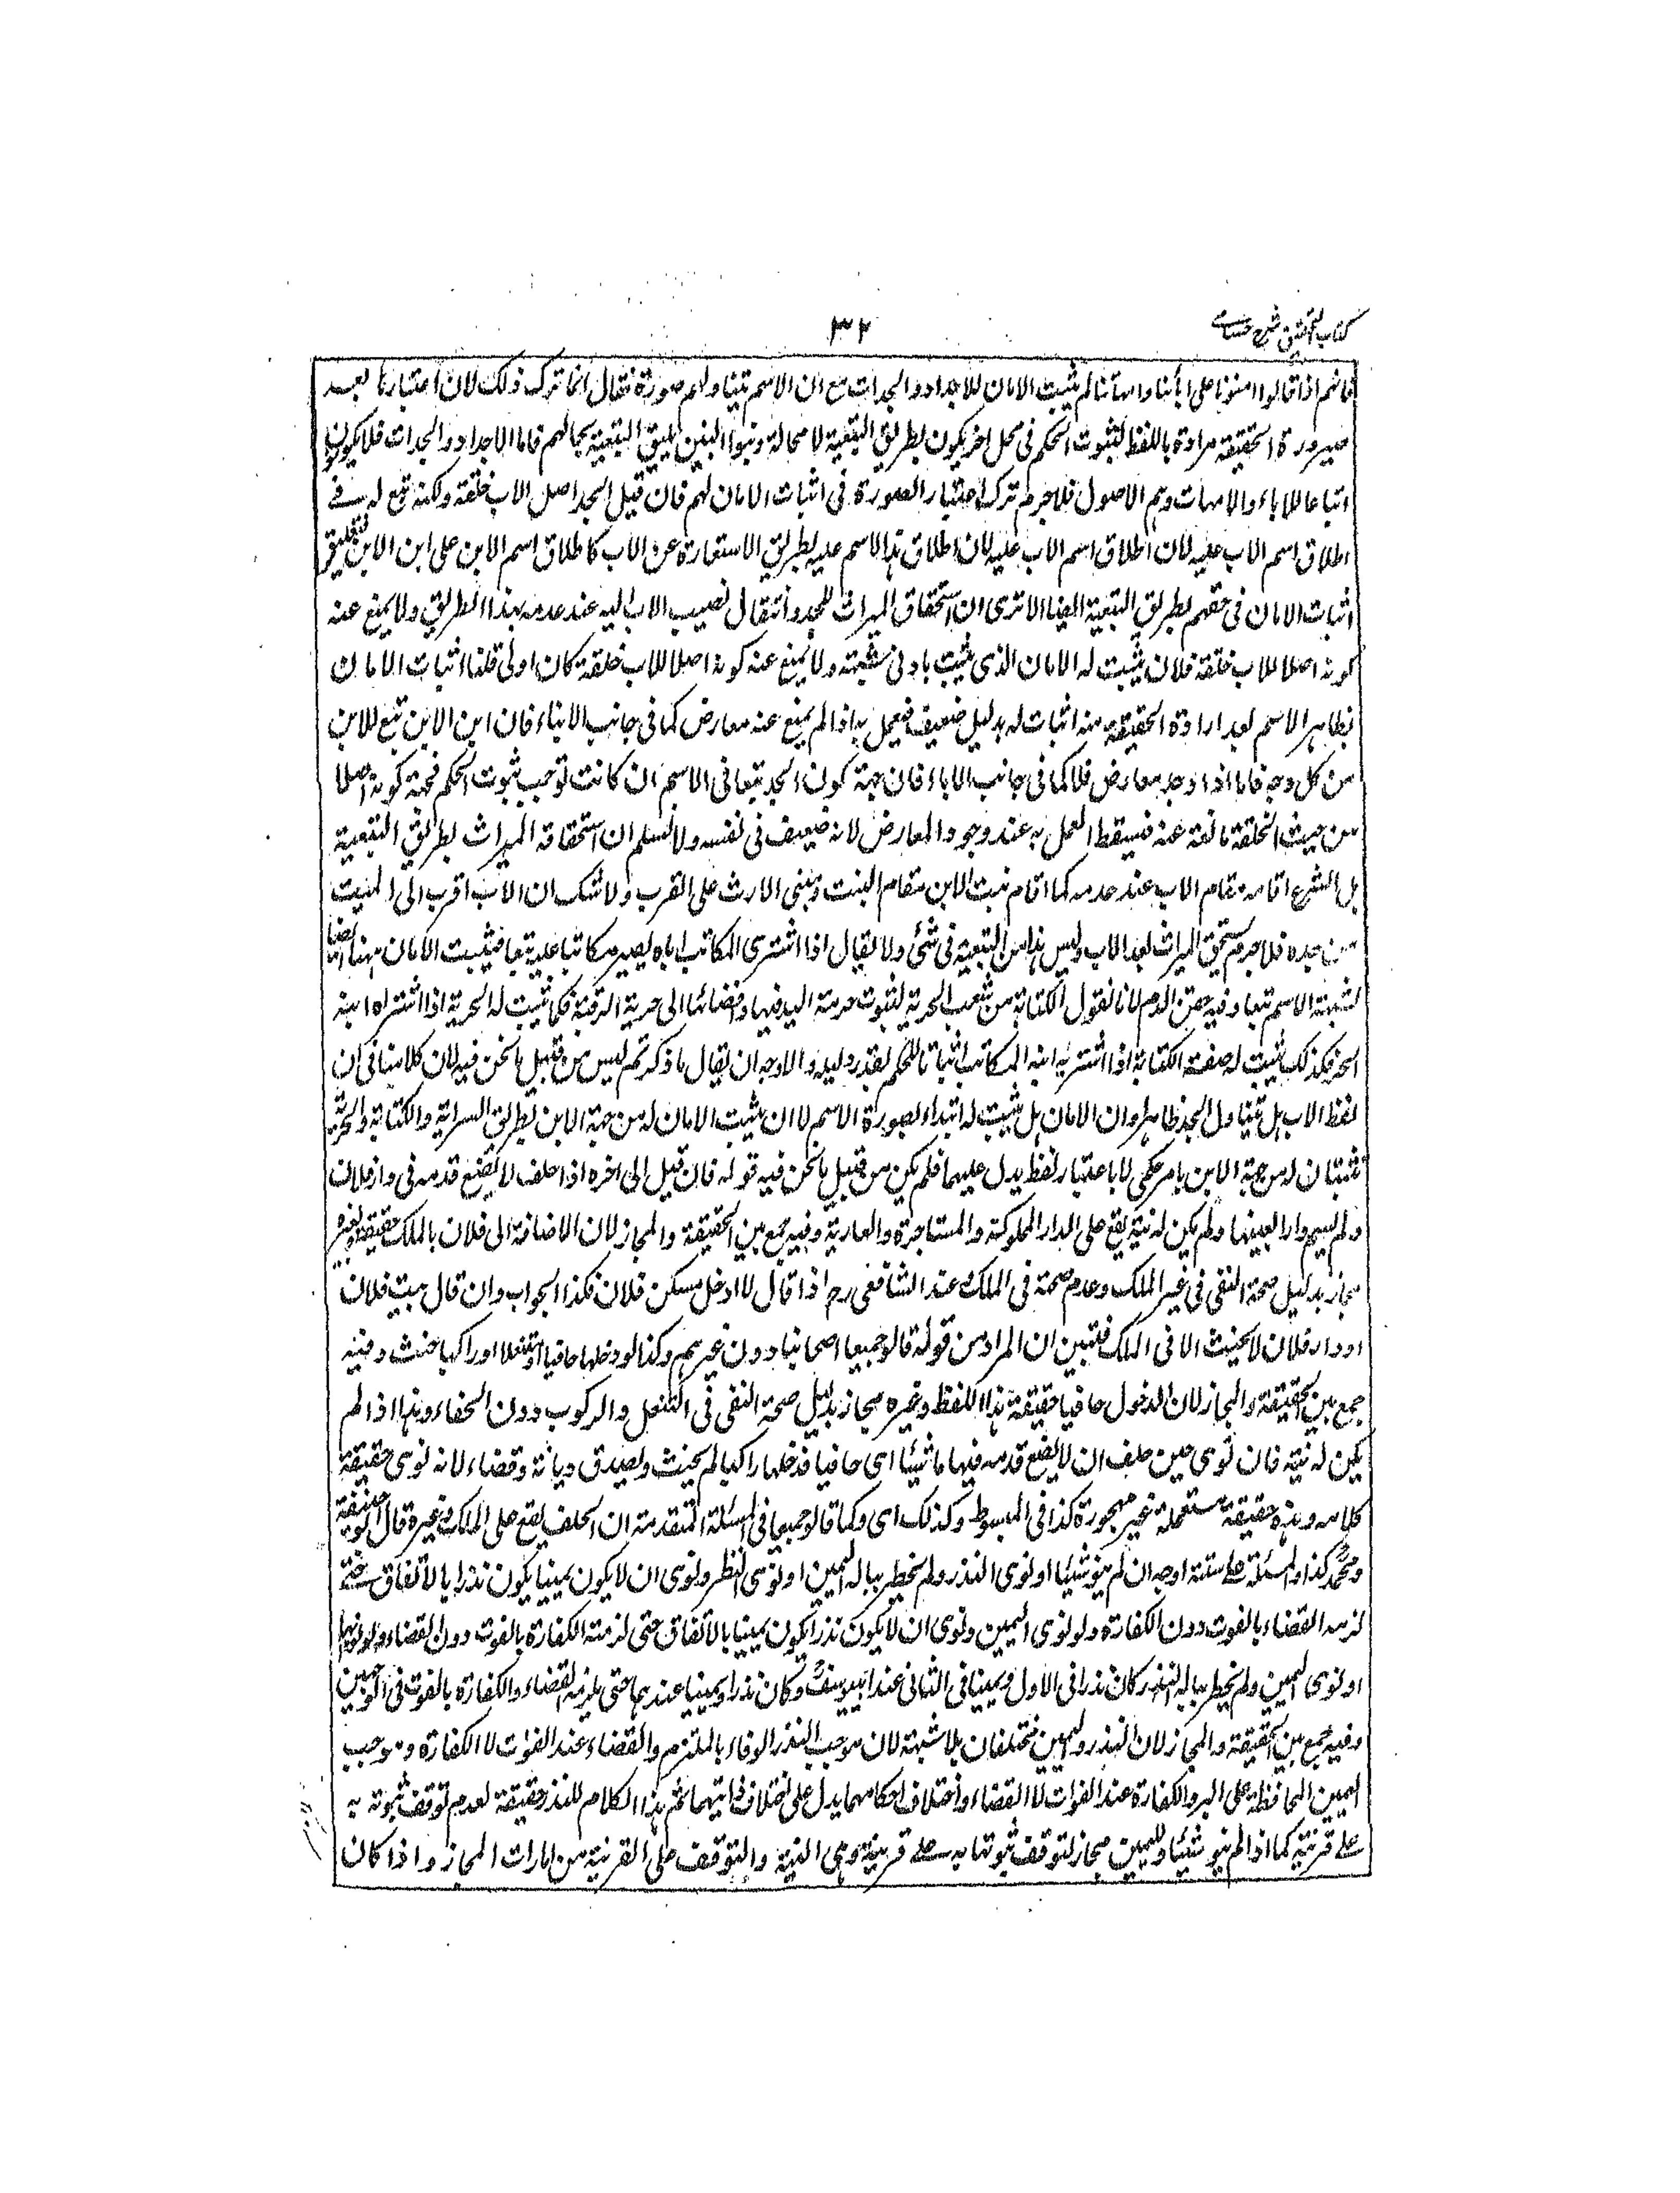 كتاب التحقيق شرح حسامي
٣٢
فانهم اذا قالوا امنونا على ابائنا وامهاتنا لم يثبت الامان للاجداد والجدات مع ان الاسم يتناولهم صورة فقال انما ترك ذلك لان اعتبارها بعد
صيرورة الحقيقة مرادة باللفظ لثبوت الحكم فى محل اخر يكون بطريق التبعية لا محالة وبنوا البنين يليق التبعية بحالهم فاما الاجداد والجدات فلا يكونون
اتباعا للاباء والامهات وهم الاصول فلا جرم ترك اعتبار الصورة فى اثبات الامان لهم فان قيل الجد اصل الاب خلقة ولكنه تبع له فے
اطلاق اسم الاب عليه لان اطلاق اسم الاب عليه لان اطلاق هذا الاسم عليه بطريق الاستعارة عن الاب كاطلاق اسم الابن على ابن الابن فيليق
اثبات الامان فى حقهم بطريق التبعية ايضا الا ترى ان استحقاق الميراث للجد وانتقال نصيب الاب اليه عند عدمه بهذا الطريق ولا يمنع عنه
كونه اصلا للاب خلقة فلان يثبت له الامان الذى يثبت بادنى شبهة ولا يمنع عنه كونه اصلا للاب خلقة كان اولى قلنا اثبات الامان
بظاهر الاسم بعد ارادة الحقيقة منه اثبات له بدليل ضعيف فيعمل به اذا لم يمنع عنه معارض كما فى جانب الابناء فان ابن الابن تبع للابن
من كل وجه فاما اذا وجد معارض فلا كما فى جانب الاباء فان جهة كون الجد تبعا فى الاسم ان كانت توجب ثبوت الحكم فجهة كونه اصلا
من حيث الخلقة مانعة عنه فيسقط العمل به عند وجود المعارض لانه ضعيف فى نفسه ولا نسلم ان استحقاقه الميراث بطريق التبعية
بل الشرع اقامه مقام الاب عند عدمه كما اقام بنت الابن مقام البنت وبنى الارث على القرب ولا شك ان الاب اقرب الى الميت
من جده فلا جرم يستحق الميراث بعد الاب وليس هذا من التبعية فى شئ ولا يقال اذا اشترى المكاتب اباه يصير مكاتبا عليه تبعا فيثبت الامان ههنا ايضا
لشبهة الاسم تبعا وفيه حقن الدم لانا نقول الكتابة من شعب الحرية لثبوت حرمة اليد فيها وافضائها الى حرية الرقبة فكما يثبت له الحرية اذا اشتراه ابنه
الحر فكذلك يثبت له صفة الكتابة اذا اشتريه ابنه المكاتب اثباتا للحكم بقدر دليله والاوجه ان يقال ما ذكرتم ليس من قبيل ما نحن فيه لان كلامنا فى ان
لفظ الاب هل يتناول الجد ظاهرا وان الامان هل يثبت له ابتداء بصورة الاسم لا ان يثبت الامان له من جهة الابن بطريق السراية والكتابة والحرية
تثبتان له من جهة الابن بامر حكمى لا باعتبار لفظ يدل عليهما فلم يكن من قبيل ما نحن فيه قوله فان قيل الى اخره اذا حلف لا يضع قدمه فى دار فلان
ولم يسم دارا بعينها ولم يكن له نية يقع على الدار المملوكة والمستاجرة والعارية وفيه جمع بين الحقيقة والمجاز لان الاضافة الى فلان بالملك حقيقة وبغيره
مجاز بدليل صحة النفى فى غير الملك وعدم صحته فى الملك وعند الشافعى رح اذا قال لا ادخل مسكن فلان فكذا الجواب وان قال بيت فلان
او دار فلان لا يحنث الا فى الملك فتبين ان المراد من قوله قالوا جميعا اصحابنا دون غيرهم وكذا لو دخلها حافيا او متنعلا او راكبا حنث وفيه
جمع بين الحقيقة والمجاز لان الدخول حافيا حقيقة هذا اللفظ وغيره مجاز بدليل صحة النفى فى التنعل والركوب دون الحفاء وهذا اذا لم
يكن له نية فان نوى حين حلف ان لا يضع قدمه فيها ماشيا اى حافيا فدخلها راكبا لم يحنث ويصدق ديانة وقضاء لانه نوى حقيقة
كلامه وهذه حقيقة مستعملة غير مهجورة كذا فى المبسوط وكذلك اى وكما قالوا جميعا فى المسئلة المتقدمة ان الحلف يقع على الملك وغيره قال ابو حنيفة
ومحمد كذا والمسئلة على ستة اوجه ان لم ينو شيئا او نوى النذر ولم يخطر بباله اليمين او نوى النظر ونوى ان لا يكون يمينا يكون نذرا بالاتفاق حتى
لزمه القضاء بالفوت دون الكفارة ولو نوى اليمين ونوى ان لا يكون نذرا يكون يمينا بالاتفاق حتى لزمته الكفارة بالفوت دون القضاء ولو نواهما
او نوى اليمين ولم يخطر بباله النذر كان نذرا فى الاول ويمينا فى الثانى عند ابى يوسف وكان نذرا ويمينا عندهما حتى يلزمه القضاء والكفارة بالفوت فى الوجهين
وفيه جمع بين الحقيقة والمجاز لان النذر واليمين مختلفان بلا شبهة لان موجب النذر الوفاء بالملتزم والقضاء عند الفوات لا الكفارة وموجب
اليمين المحافظة على البر والكفارة عند الفوات لا القضاء واختلاف احكامهما يدل على اختلاف ذاتيهما ثم هذا الكلام للنذر حقيقة لعدم توقف ثبوته به
على قرينة كما اذا لم ينو شيئا ولليمين مجاز لتوقف ثبوتها به على قرينة وهى النية والتوقف على القرينة من امارات المجاز واذا كان